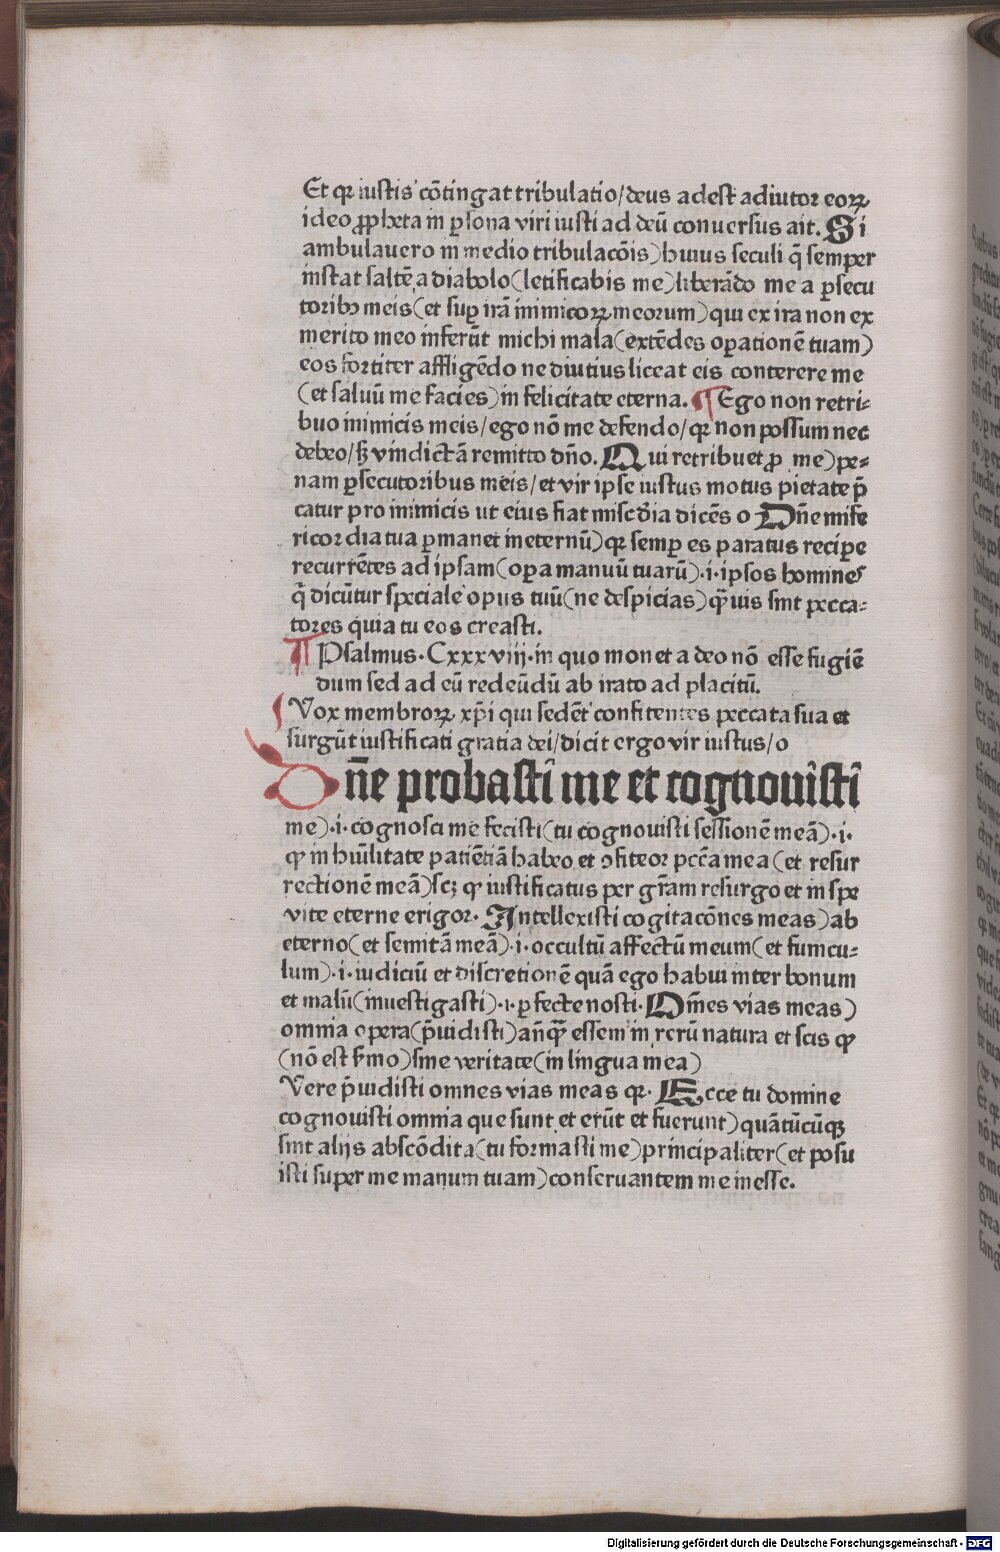 Et qꝛ iustis cōtingat tribulatio/deus adest adiutor eoꝝ
ideo ꝓpheta in ꝑsona viri iusti ad deū conuersus ait. Si
ambulauero in medio tribulacōis)huius seculi q̄ semper
instat saltē a diabolo(letificabis me)liberādo me a ꝑsecu
toribꝫ meis(et suꝑ irā inimicoꝝ meorum)qui ex ira non ex
merito meo inferūt michi mala(extēdes oꝑationē tuam)
eos fortiter affligēdo ne diutius liceat eis conterere me
(et saluū me facies)in felicitate eterna. ¶ Ego non retri⸗
buo inimicis meis/ego nō me defendo/qꝛ non possum nec
debeo/sꝫ vindictā remitto dn̄o. Qui retribuet ꝓ me)pe⸗
nam ꝑsecutoribus meis/et vir ipse iustus motus pietate p̄
catur pro inimicis ut eius fiat misc̄dia dicēs o Dn̄e mise
ricordia tua ꝑmanet ineternū)qꝛ semꝑ es paratus recipe
recurrētes ad ipsam(oꝑa manuū tuarū).i.ipsos homines
q̄ dicūtur speciale opus tuū(ne despicias)q̄uis sint pecca⸗
tores quia tu eos creasti.
¶ Psalmus.Cxxxviij.in quo monet a deo nō esse fugiē
dum sed ad eū redeūdū ab irato ad placitū.
Vox membroꝝ xp̄i qui sedēt confitentes peccata sua et
surgūt iustificati gratia dei/dicit ergo vir iustus/o
Dn̄e probasti me et cognouisti
me).i.cognosci me fecisti(tu cognouisti sessionē meā).i.
ꝙ in hūilitate patiētiā habeo et ꝯfiteor pcc̄a mea(et resur
rectionē meā)scꝫ ꝙ iustificatus per gr̄am resurgo et in spe
vite eterne erigor. Intellexisti cogitacōnes meas)ab
eterno(et semitā meā).i.occultū affectū meum(et funicu⸗
lum).i.iudiciū et discretionē quā ego habui inter bonum
et malū(inuestigasti).i.ꝑfecte nosti. Om̄es vias meas)
omnia opera(p̄uidisti)anq̄ꝫ essem in rerū natura et scis ꝙ
(nō est s̄mo)sine veritate(in lingua mea)
Vere p̄uidisti omnes vias meas qꝛ. Ecce tu domine
cognouisti omnia que sunt et erūt et fuerunt)quātūcūqꝫ
sint alijs abscōdita(tu formasti me)principaliter(et posu
isti super me manum tuam)conseruantem me inesse.
Digitalisierung gefördert durch die Deutsche Forschungsgemeinschaft - DFG